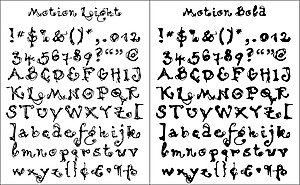 Motion Light
!"#$%&'()*,.012
3456789?“”@¢
ABCDEFGHIJ
KLMNOPQR
STUVWXYZ[
]abcdefghijk
lmnopqrstuv
wxyz{}¢•¶fl
Motion Bold
!"#$%&'()*,.012
3456789?“”@¢
ABCDEFGHIJ
KLMNOPQR
STUVWXYZ[
]abcdefghijk
lmnopqrstuv
wxyz{}¢•¶fl